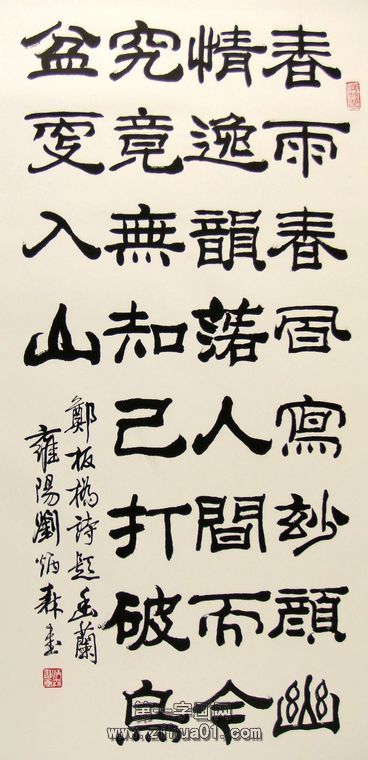 春雨春風寫妙顏幽
情逸韻落人間而今
究竟無知己打破烏
盆更入山
鄭板橋詩題幽蘭
雍陽劉炳森書
第一字画网
www.zihua01.com